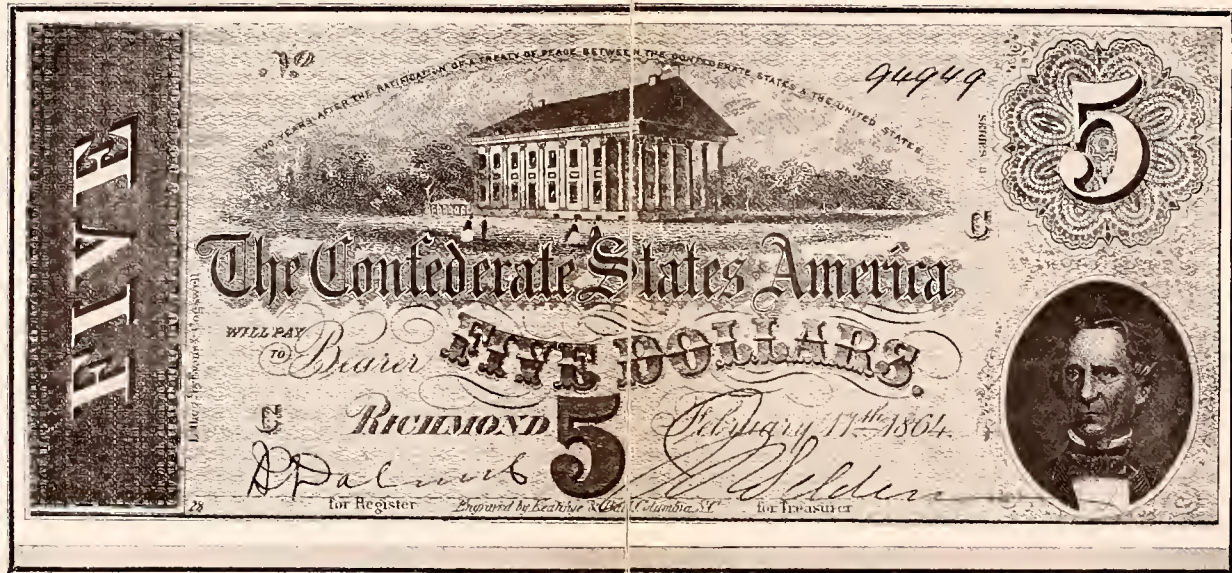 No.
94949
TWO YEARS AFTER THE RATIFICATION OF A TREATY OF PEACE BETWEEN THE CONFEDERATE STATES & THE UNITED STATES.
5
FIVE
C
The Confederate States America
WILL PAY
TO Bearer FIVE DOLLARS.
C
RICHMOND February 17th 1864.
5
Selden
28
for Register
Engraved by Keatinge & Ball, Columbia, S.C.
for Treasurer